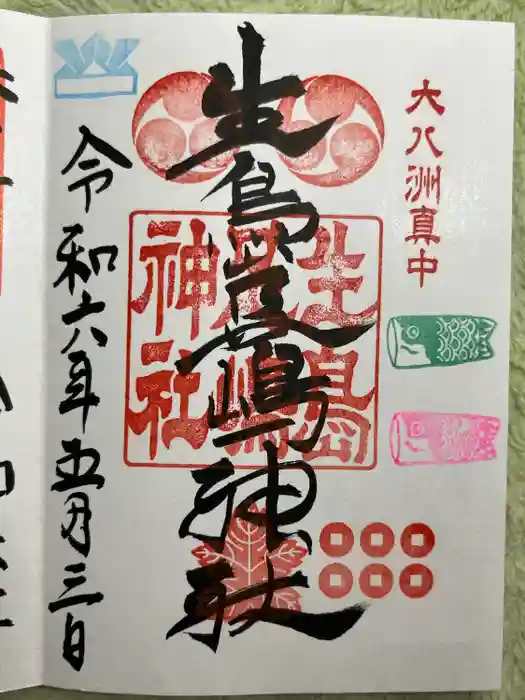 大八洲真中
生島足嶋神社
生島足嶋神社
令和六年五月三日